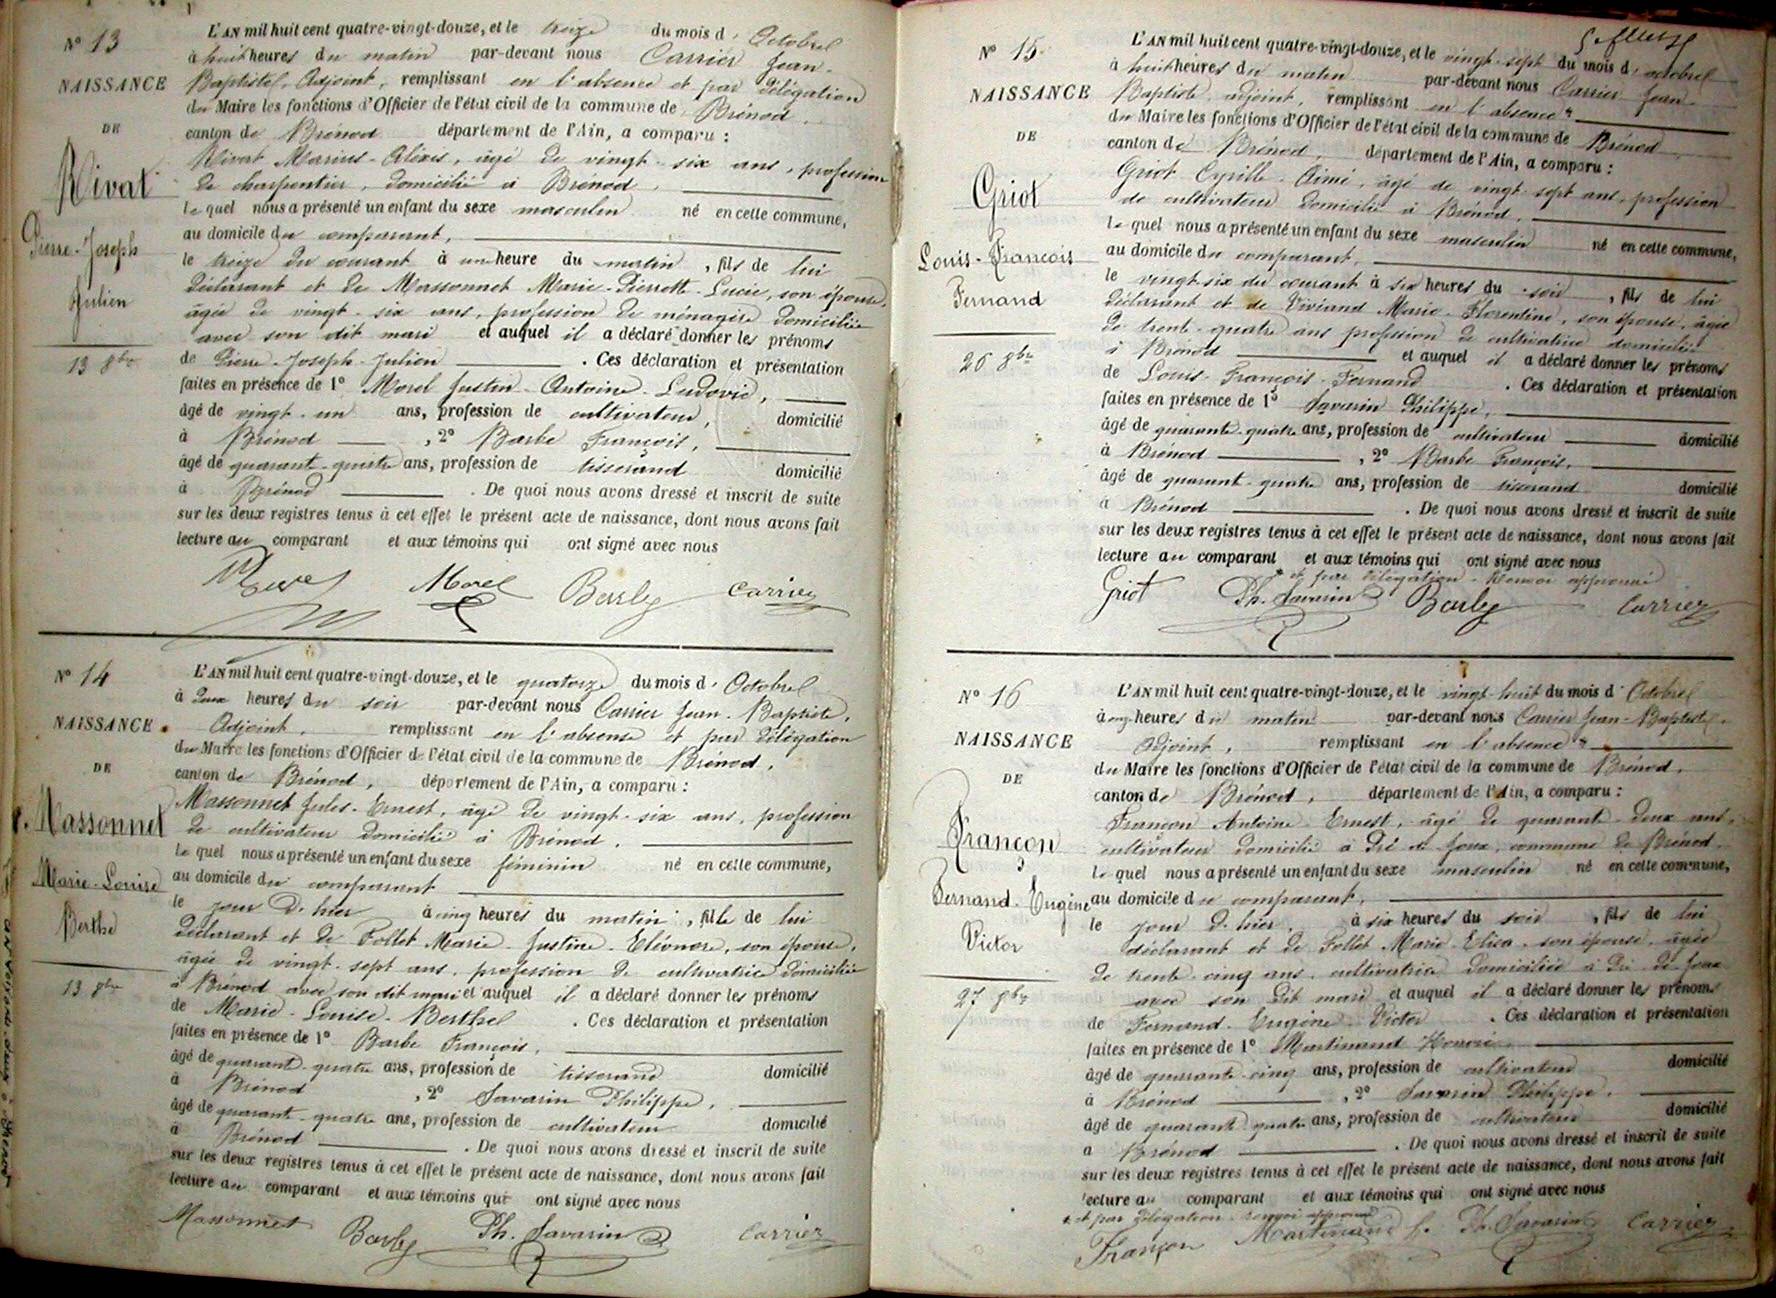 N° 13
NAISSANCE
DE
Rivat
Pierre-Joseph
Julien
13 8bre
L'AN mil huit cent quatre-vingt-douze, et le treize du mois d'Octobre
à huit heures du matin par-devant nous Carrier Jean-
Baptiste, Adjoint, remplissant en l'absence et par délégation
du Maire les fonctions d'Officier de l'état civil de la commune de Brénod,
canton de Brénod département de l'Ain, a comparu :
Rivat Marius-Alexis, âgé de vingt-six ans, profession
de charpentier, domicilié à Brénod,
lequel nous a présenté un enfant du sexe masculin né en cette commune,
au domicile du comparant,
le treize du courant à une heure du matin, fils de lui
déclarant et de Massonnet Marie-Pierrette-Lucie, son épouse,
âgée de vingt-six ans, profession de ménagère domiciliée
avec son dit mari et auquel il a déclaré donner les prénoms
de Pierre-Joseph-Julien. Ces déclaration et présentation
faites en présence de 1° Morel Justin-Antoine-Ludovic,
âgé de vingt-un ans, profession de cultivateur, domicilié
à Brénod, 2° Barbe François,
âgé de quarant-quatre ans, profession de tisserand domicilié
à Brénod. De quoi nous avons dressé et inscrit de suite
sur les deux registres tenus à cet effet le présent acte de naissance, dont nous avons fait
lecture au comparant et aux témoins qui ont signé avec nous
Morel Barbe Carrier
N° 14
NAISSANCE
DE
Massonnet
Marie-Louise
Berthe
13 8bre
L'AN mil huit cent quatre-vingt-douze, et le quatorze du mois d'Octobre
à deux heures du soir par-devant nous Carrier Jean-Baptiste,
Adjoint, remplissant en l'absence et par délégation
du Maire les fonctions d'Officier de l'état civil de la commune de Brénod,
canton de Brénod, département de l'Ain, a comparu :
Massonnet Jules-Ernest, âgé de vingt-six ans, profession
de cultivateur domicilié à Brénod,
lequel nous a présenté un enfant du sexe féminin né en cette commune,
au domicile du comparant
le jour d'hier à cinq heures du matin, fille de lui
déclarant et de Pollet Marie-Justine-Eléonore, son épouse,
âgée de vingt-sept ans, profession de cultivatrice domiciliée
à Brénod avec son dit mari et auquel il a déclaré donner les prénoms
de Marie-Louise-Berthe. Ces déclaration et présentation
faites en présence de 1° Barbe François,
âgé de quarant-quatre ans, profession de tisserand domicilié
à Brénod, 2° Savarin Philippe,
âgé de quarant-quatre ans, profession de cultivateur domicilié
à Brénod. De quoi nous avons dressé et inscrit de suite
sur les deux registres tenus à cet effet le présent acte de naissance, dont nous avons fait
lecture au comparant et aux témoins qui ont signé avec nous
Massonnet Barbe Ph. Savarin Carrier
N° 15
NAISSANCE
DE
Griot
Louis-François
Fernand
26 8bre
L'AN mil huit cent quatre-vingt-douze, et le vingt-sept du mois d'octobre
à huit heures du matin par-devant nous Carrier Jean-
Baptiste, adjoint, remplissant en l'absence *
du Maire les fonctions d'Officier de l'état civil de la commune de Brénod
canton de Brénod, département de l'Ain, a comparu :
Griot Cyrille-Aimé, âgé de vingt-sept ans, profession
de cultivateur domicilié à Brénod,
lequel nous a présenté un enfant du sexe masculin né en cette commune,
au domicile du comparant,
le vingt-six du courant à six heures du soir, fils de lui
déclarant et de Viviand Marie-Florentine, son épouse, âgée
de trente-quatre ans profession de cultivatrice domiciliée
à Brénod et auquel il a déclaré donner les prénoms
de Louis-François-Fernand. Ces déclaration et présentation
faites en présence de 1° Savarin Philippe,
âgé de quarante-quatre ans, profession de cultivateur domicilié
à Brénod, 2° Barbe François,
âgé de quarant-quatre ans, profession de tisserand domicilié
à Brénod. De quoi nous avons dressé et inscrit de suite
sur les deux registres tenus à cet effet le présent acte de naissance, dont nous avons fait
lecture au comparant et aux témoins qui ont signé avec nous
* et par délégation - Renvoi approuvé
Griot Ph. Savarin Barbe Carrier
N° 16
NAISSANCE
DE
Françon
Fernand-Eugène
Victor
27 8bre
L'AN mil huit cent quatre-vingt-douze, et le vingt-huit du mois d'Octobre
à onze heures du matin par-devant nous Carrier Jean-Baptiste,
Adjoint, remplissant en l'absence *
du Maire les fonctions d'Officier de l'état civil de la commune de Brénod,
canton de Brénod, département de l'Ain, a comparu :
Françon Antoine-Ernest, âgé de quarante-deux ans,
cultivateur domicilié à Pré de Joux, commune de Brénod
lequel nous a présenté un enfant du sexe masculin né en cette commune,
au domicile du comparant,
le jour d'hier, à six heures du soir, fils de lui
déclarant et de Pollet Marie-Elisa, son épouse, âgée
de trente-cinq ans, cultivatrice domiciliée à Pré de Joux
avec son dit mari et auquel il a déclaré donner les prénoms
de Fernand-Eugène-Victor. Ces déclaration et présentation
faites en présence de 1° Martinand Honoré,
âgé de quarante-cinq ans, profession de cultivateur domicilié
à Brénod, 2° Savarin Philippe,
âgé de quarant-quatre ans, profession de cultivateur domicilié
à Brénod. De quoi nous avons dressé et inscrit de suite
sur les deux registres tenus à cet effet le présent acte de naissance, dont nous avons fait
lecture au comparant et aux témoins qui ont signé avec nous
* et par délégation - renvoi approuvé
Françon Martinand h. Ph. Savarin Carrier